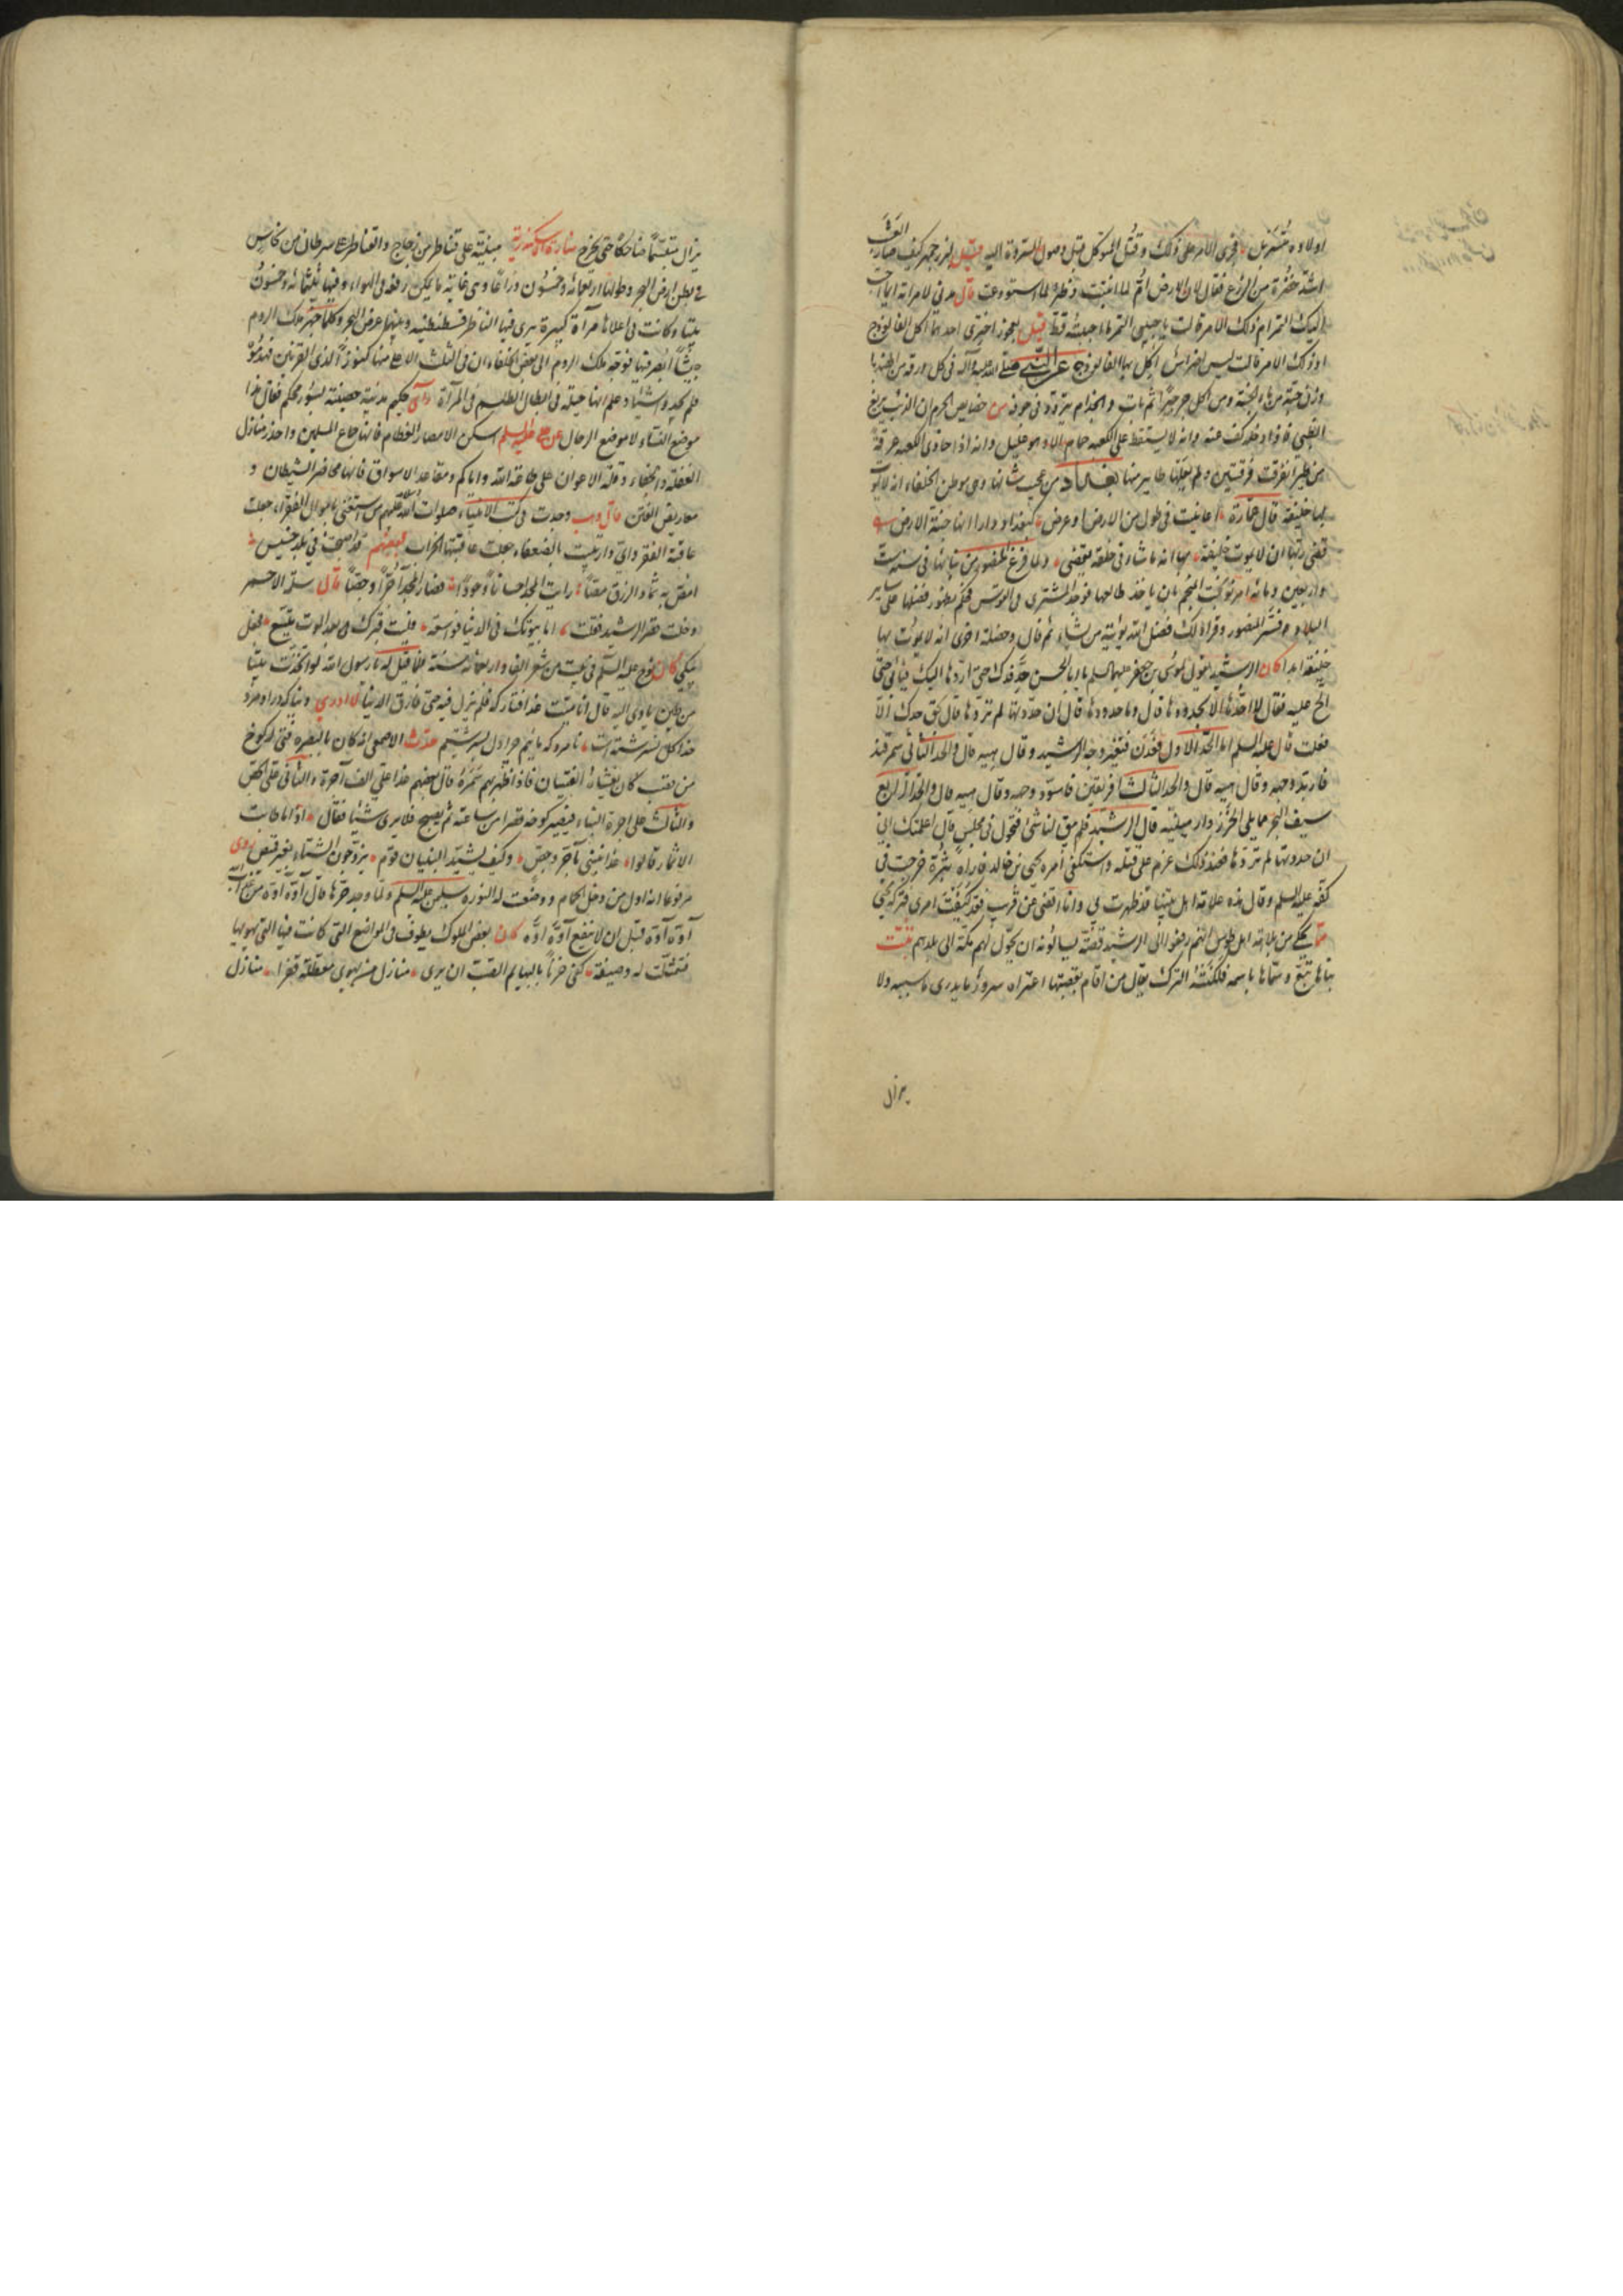 اولاده متفرقين فجرى الامر على ذلك وقتل المتوكل قبل وصول السروة اليه قيل لبزرجمهر كيف صار العشب
اشد خضرة من الزرع فقال لان الارض ام لما انبتت وظئر لما استودعت قال مدني لامراته ايما احب
اليك التمر ام ذلك الامر قالت يا حبيبي التمر ما احببته قط قيل لعجوز اختري احدهما اكل الفالوذج
او ذلك الامر قالت ليس لي اضراس اكل بها الفالوذج عن النبي صلى الله عليه وآله في كل ورقة من الهندبا
وزن حبة من ماء الجنة ومن اكل جرجيرا ثم بات والجذام يتردد في جوفه من خصايص الحرم ان الذئب يريغ
الظبي فاذا دخله كف عنه وانه لا يسقط على الكعبة حمام الا وهو عليل وانه اذا حاذى الكعبة عرقة
من طير انفرقت فرقتين ولم يعلها طاير منها بغداد من عجيب شانها وهي موطن الخلفاء انه لا يموت
بها خليفة قال عمارة اعاينت في طول من الارض او عرض كبغداد دارا انها جنة الارض
قضى ربها ان لا يموت خليفة بها انه ما شاء في خلقه يقضي ولما فرغ المنصور من بنائها في سنة ست
واربعين ومائة امر نوبخت المنجم بان ياخذ طالعها فوجد المشتري في القوس فحكم بظهور فضلها على ساير
البلاد فسر المنصور وقرا ذلك فضل الله يؤتيه من يشاء ثم قال وخصلة اخرى انه لا يموت بها
خليفة ابدا كان الرشيد يقول لموسى بن جعفر عليهما السلم يا ابا الحسن حد فدك حتى اردها اليك فيابى حتى
الح عليه فقال لا اخذها الا بحدودها قال وما حدودها قال ان حددتها لم تردها قال بحق جدك الا
فعلت قال عليه السلم اما الحد الاول فعدن فتغير وجه الرشيد وقال هيه قال والحد الثاني سمرقند
فاربد وجهه وقال هيه قال والحد الثالث افريقية فاسود وجهه وقال هيه قال والحد الرابع
سيف البحر مما يلي الخزر وارمينية قال الرشيد فلم يبق لنا شئ فتحول في مجلسي قال اعلمتك اني
ان حددتها لم تردها فعند ذلك عزم على قتله واستكفى امره يحيى بن خالد فاراه بثرة خرجت في
كفه عليه السلم وقال هذه علامة اهل بيتنا قد ظهرت بي وانا اقضي عن قرب فقد كفيت امري فتركه يحيى
مما يحكى من بلاهة اهل طوس انهم رفعوا الى الرشيد قصة يسالونه ان يحول لهم مكة الى بلدهم تبت
بناها تبع وسماها باسمه فلكنته الترك يقال من اقام بقصبتها اعتراه سرور ما يدرى ما سببه ولا
يزال
يزال متبسما ضاحكا حتى يخرج منارة الاسكندرية مبنية على قناطر من زجاج والقناطر على سرطان من نحاس
في بطن ارض البحر وطولها اربعمائة وخمسون ذراعا وهي غاية ما يمكن رفعه في الهواء وفيها ثلثمائة وخمسون
بيتا وكانت في اعلاها مرآة كبيرة يرى فيها الناظر قسطنطينية وبينهما عرض البحر وكلما جهز ملك الروم
جيشا ابصر فيها فوجه ملك الروم الى بعض الخلفاء ان في الثلث الاعلى منها كنوزا لذي القرنين فهدموه
فلم يجدوا شيئا وعلم انها حيلة في ابطال الطلسم في المرآة راى حكيم مدينة حصينة بسور محكم فقال هذا
موضع النساء لا موضع الرجال عن علي عليه السلم اسكن الامصار العظام فانها جماع المسلمين واحذر منازل
الغفلة والجفاء وقلة الاعوان على طاعة الله واياكم ومقاعد الاسواق فانها محاضر الشيطان و
معاريض الفتن قال وهب وجدت في كتب الانبياء صلوات الله عليهم من استغنى باموال الفقراء جعلت
عاقبته الفقر واي دار بنيت بالضعفاء جعلت عاقبتها الخراب لبعضهم قد اصبحت في بلد خسيس
امص به ثماد الرزق مصا رايت المجد احسانا وجودا فصار المجد آجرا وجصا قال سلم الاحمر
دخلت قصر الرشيد فقلت اما بيوتك في الدنيا فواسعة فليت قبرك بعد الموت يتسع فجعل
يبكي كان نوح عليه السلم في بيت من شعر الف واربعمائة سنة فلما قيل له يا رسول الله لو اتخذت بيتا
من طين ياوى اليه قال انا ميت غدا فتاركه فلم يزل فيه حتى فارق الدنيا
حدث الاصمعي انه كان بالبصرة فتى له كوخ
من قصب كان يغشاه الفتيان فاذا ظهر بهم سكره قال بعضهم هذا علي الف آجرة والثاني علي الجص
والثالث علي اجرة البناء فيصير كوخه قصرا من ساعته ثم يصبح فلا يرى شيئا فقال اذا ما طابت
الاثمار قالوا غدا نبني بآجر وجص وكيف يشيد البنيان قوم يزجون الشتاء بغير قمص روى
مرفوعا انه اول من دخل الحمام ووضعت له النورة سليمن عليه السلم ولما وجد حرها قال آوه اوه من عذاب الله
آوه آوه قبل ان لا ينفع آوه اوه كان بعض الملوك يطوف في المواضع التي كانت فيها التي يهويها
فتمثلت له وصيفة كفى حزنا بالهايم الصب ان يرى منازل من يهوى معطلة قفرا منازل